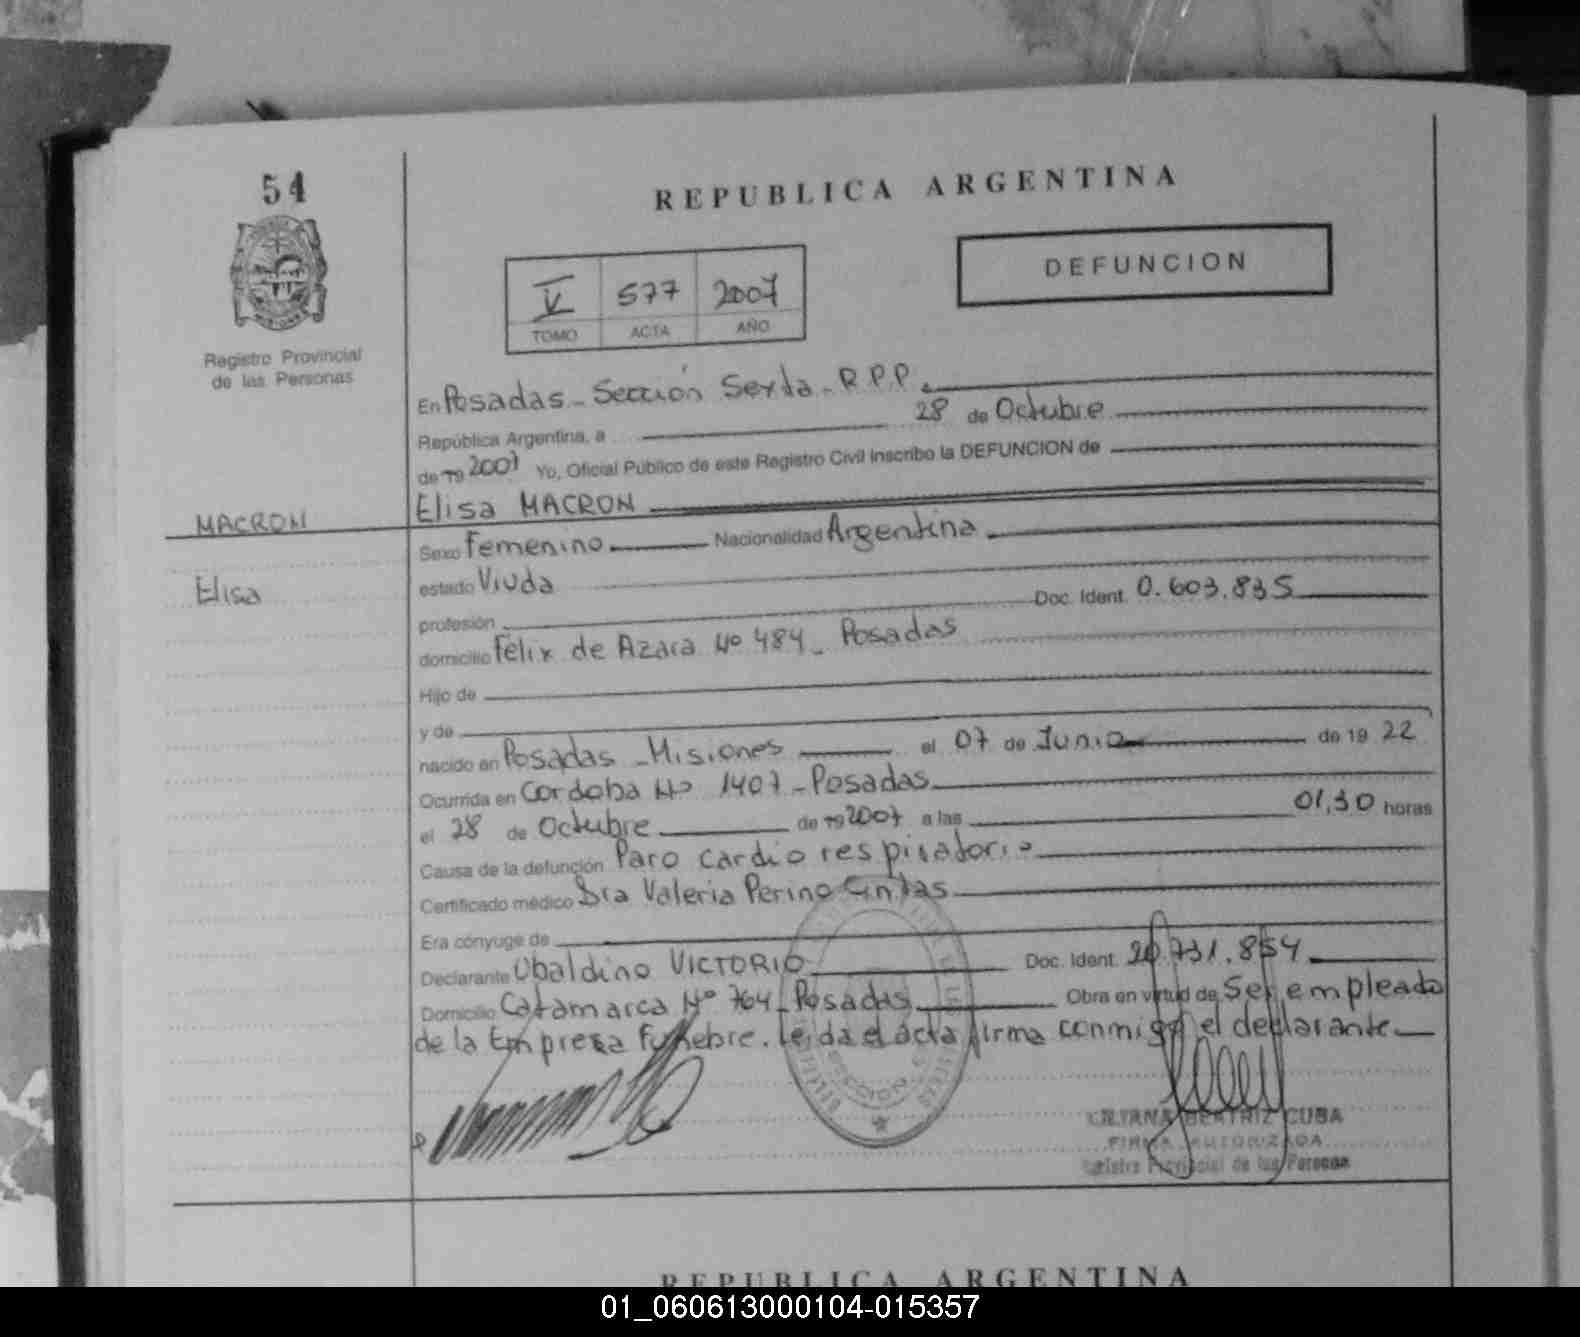 54
REPUBLICA ARGENTINA
DEFUNCION
V 577 2007
TOMO ACTA AÑO
Registro Provincial
de las Personas
En Posadas - Sección Sexta - R.P.P.
República Argentina, a 28 de Octubre
de 19 2007 Yo, Oficial Público de este Registro Civil inscribo la DEFUNCION de
Elisa MACRON
MACRON
Sexo Femenino Nacionalidad Argentina
Elisa
estado Viuda
profesión Doc. Ident. 0.603.835
domicilio Félix de Azara Nº 484 - Posadas
Hijo de
y de
nacido en Posadas - Misiones el 07 de Junio de 19 22
Ocurrida en Cordoba Nº 1407 - Posadas
el 28 de Octubre de 19 2007 a las 01,30 horas
Causa de la defunción Paro cardio respiratorio
Certificado médico Dra Valeria Perino Cintas
Era cónyuge de
Declarante Ubaldino VICTORIO Doc. Ident. 20.731.854
Domicilio Catamarca Nº 764 - Posadas Obra en virtud de Ser empleado
de la Empresa Fúnebre. Leída el acta firma conmigo el declarante
LILYANA BEATRIZ CUBA
FIRMA AUTORIZADA
Registro Provincial de las Personas
REPUBLICA ARGENTINA
01_060613000104-015357